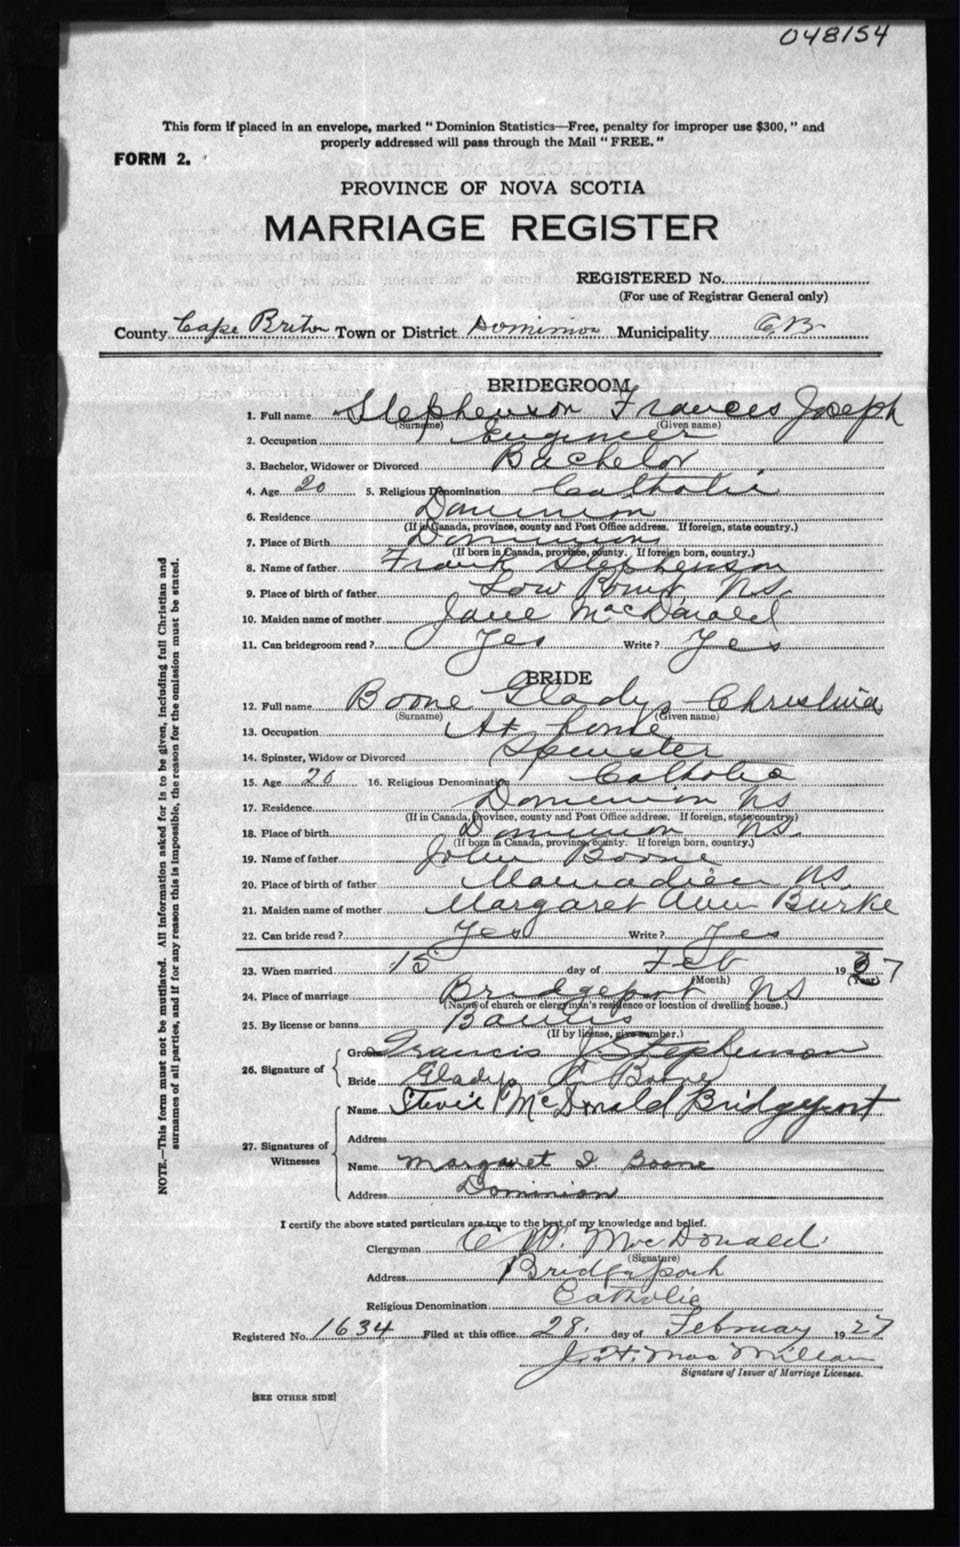 048154
This form if placed in an envelope, marked "Dominion Statistics—Free, penalty for improper use $300," and
properly addressed will pass through the Mail "FREE."
FORM 2.
PROVINCE OF NOVA SCOTIA
MARRIAGE REGISTER
REGISTERED No.
(For use of Registrar General only)
County Cape Briton Town or District Dominion Municipality C.B.
BRIDEGROOM
1. Full name Stephenson Frances Joseph
(Surname) (Given name)
2. Occupation Engineer
3. Bachelor, Widower or Divorced Bachelor
4. Age 20 5. Religious Denomination Catholic
6. Residence Dominion
(If in Canada, province, county and Post Office address. If foreign, state country.)
7. Place of Birth Dominion
(If born in Canada, province, county. If foreign born, country.)
8. Name of father Frank Stephenson
9. Place of birth of father Low Point NS.
10. Maiden name of mother Jane MacDonald
11. Can bridegroom read? Yes Write? Yes
BRIDE
12. Full name Boone Gladys Christina
(Surname) (Given name)
13. Occupation At home
14. Spinster, Widow or Divorced Spinster
15. Age 20 16. Religious Denomination Catholic
17. Residence Dominion NS
(If in Canada, Province, county and Post Office address. If foreign, state country)
18. Place of birth Dominion NS.
(If born in Canada, province, county. If foreign born, country.)
19. Name of father John Boone
20. Place of birth of father NS.
21. Maiden name of mother Margaret Ann Burke
22. Can bride read? Yes Write? Yes
23. When married 15 day of Feb 1927
(Month) (Year)
24. Place of marriage Bridgeport NS
(Name of church or clergyman's residence or location of dwelling house.)
25. By license or banns Banns
(If by license, give number.)
26. Signature of
Groom Francis J Stephenson
Bride Gladys C Boone
27. Signatures of Witnesses
Name McDonald Bridgeport
Address
Name Margaret I Boone
Address Dominion
I certify the above stated particulars are true to the best of my knowledge and belief.
Clergyman C W. MacDonald
(Signature)
Address Bridgeport
Religious Denomination Catholic
Registered No. 1634 Filed at this office 28. day of February 1927
J. H. MacMillan
Signature of Issuer of Marriage Licenses.
[SEE OTHER SIDE]
NOTE.—This form must not be mutilated. All information asked for is to be given, including full Christian and
surnames of all parties, and if for any reason this is impossible, the reason for the omission must be stated.